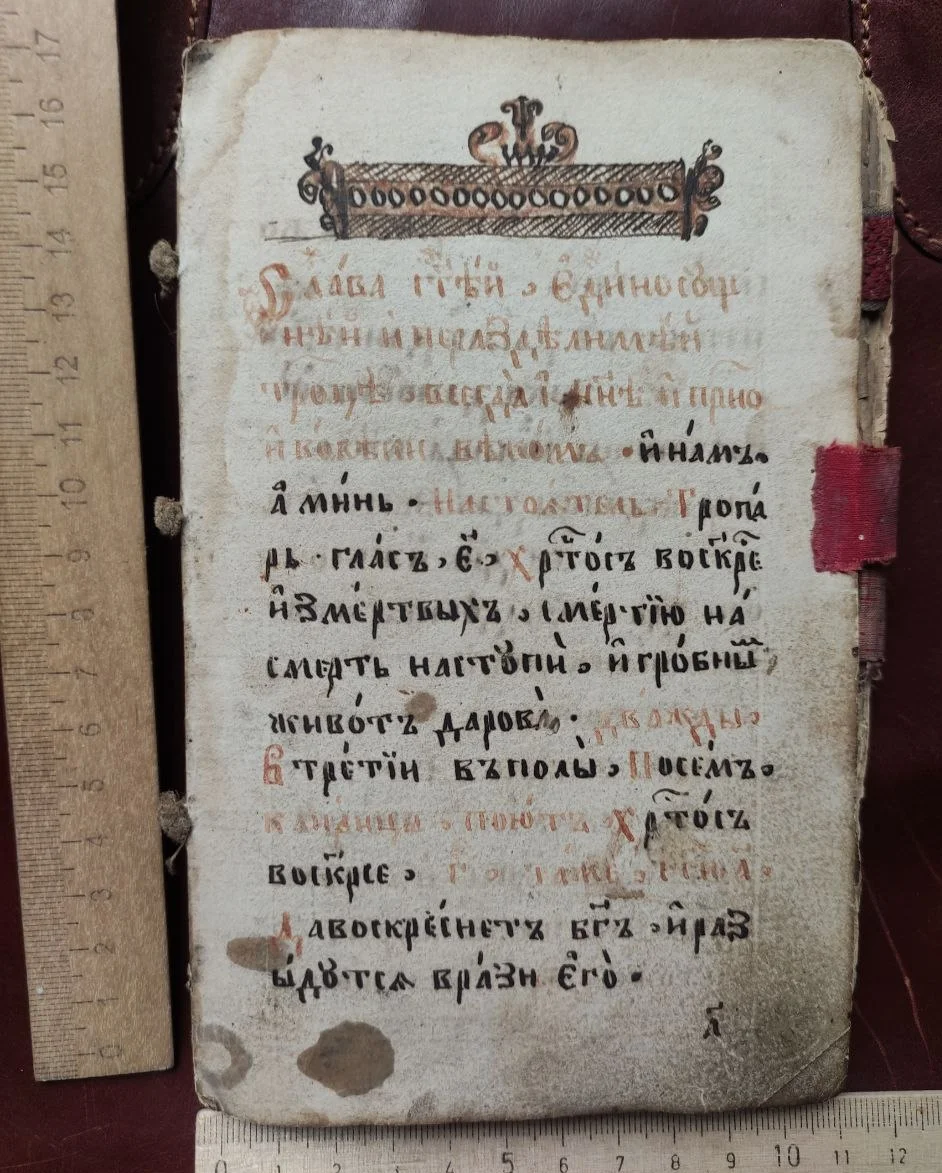 Сла́ва ст҃ѣ́й , є҆диносꙋщ
нѣ́й и҆ нераздѣлимѣ́й
трⷪ҇цѣ всегда̀ и҆ ны́нѣ и҆ при́сно
и҆ вовѣ́ки вѣкѡ́мъ • и҆ на́мъ.
а҆ми́нь • Настоѧ́тель Тропа́
рь гла́съ , є҃ , Хрⷭ҇то́съ воскр҃се
и҆зме́ртвыхъ , сме́ртїю на́
сме́рть настꙋпѝ , и҆ гро́бнымъ
живо́тъ дарова̀ • два́жды ,
В тре́тїи въполы̀ , Посе́мъ ,
пою́тъ Хрⷭ҇то́съ
воскр҃се ,
Давоскре́снетъ бг҃ъ , и҆ раз
ы́дꙋтсѧ врази́ є҆гѡ̀ •
а҃
17
16
15
14
13
12
11
10
9
8
7
6
5
4
3
2
1
0
0 1 2 3 4 5 6 7 8 9 10 11 12